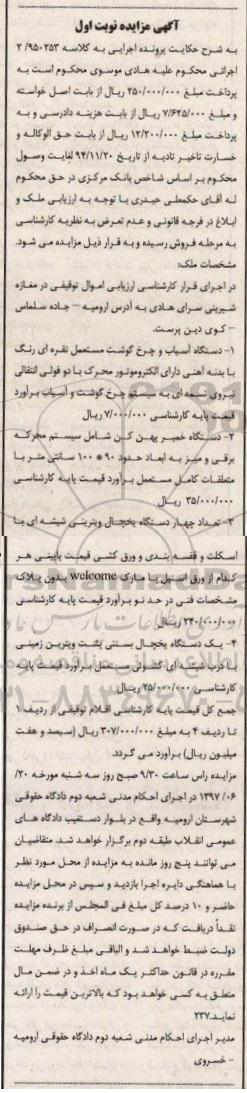 آگهی مزایده نوبت اول
به شرح حکایت پرونده اجرایی به کلاسه ۹۵۰۲۵۳/ ۲
اجرائی محکوم علیه هادی موسوی محکوم است به
پرداخت مبلغ ۲۵۰/۰۰۰/۰۰۰ ریال از بابت اصل خواسته
و مبلغ ۷/۶۲۵/۰۰۰ ریال از بابت هزینه دادرسی و به
پرداخت مبلغ ۱۲/۲۰۰/۰۰۰ ریال از بابت حق الوکاله و
خسارت تاخیر تادیه از تاریخ ۹۴/۱۱/۲۰ لغایت وصول
محکوم بر اساس شاخص بانک مرکزی در حق محکوم
له آقای حکمعلی حیدری با توجه به ارزیابی ملک و
ابلاغ در فرجه قانونی و عدم تعرض به نظریه کارشناسی
به مرحله فروش رسیده و به قرار ذیل مزایده می شود.
مشخصات ملک:
در اجرای قرار کارشناسی ارزیابی اموال توقیفی در مغازه
شیرینی سرای هادی به آدرس ارومیه – جاده سلماس
– کوی دین پرست.
۱- دستگاه آسیاب و چرخ گوشت مستعمل نقره ای رنگ
با بدنه آهنی دارای الکتروموتور محرک با دو فولی انتقالی
نیروی تسمه ای به سیستم چرخ گوشت و آسیاب برآورد
قیمت پایه کارشناسی ۷/۰۰۰/۰۰۰ ریال
۲- دستگاه خمیر پهن کن شامل سیستم محرکه
برقی و میز به ابعاد حدود ۹۰ * ۱۰۰ سانتی متر با
متعلقات کامل مستعمل برآورد قیمت پایه کارشناسی
۳۵/۰۰۰/۰۰۰ ریال
۳- تعداد چهار دستگاه یخچال ویترینی شیشه ای با
اسکلت و قفسه بندی و ورق کشی قیمت پایینی هر
کدام از ورق استیل با مارک welcome بدون پلاک
مشخصات فنی در حد نو برآورد قیمت پایه کارشناسی
۲۴۰/۰۰۰/۰۰۰ ریال
۴- یک دستگاه یخچال بستنی پشت ویترین زمینی
با درب شیشه ای کشوئی مستعمل برآورد قیمت پایه
کارشناسی ۲۵/۰۰۰/۰۰۰ ریال
جمع کل قیمت پایه کارشناسی اقلام توقیفی از ردیف ۱
تا ردیف ۴ به مبلغ ۳۰۷/۰۰۰/۰۰۰ ریال (سیصد و هفت
میلیون ریال) برآورد می گردد.
مزایده راس ساعت ۹/۳۰ صبح روز سه شنبه مورخه ۲۰/
۱۳۹۷/۰۶ در اجرای احکام مدنی شعبه دوم دادگاه حقوقی
شهرستان ارومیه واقع در بلوار دستغیب دادگاه های
عمومی انقلاب طبقه دوم برگزار خواهد شد. متقاضیان
می توانند پنج روز مانده به مزایده از محل مورد نظر
با هماهنگی دایره اجرا بازدید و سپس در محل مزایده
حاضر و ۱۰ درصد کل مبلغ فی المجلس از برنده مزایده
نقداً دریافت که در صورت انصراف در حق صندوق
دولت ضبط خواهد شد و الباقی مبلغ ظرف مهلت
مقرره در قانون حداکثر یک ماه اخذ و در ضمن مال
متعلق به کسی خواهد بود که بالاترین قیمت را ارائه
نماید.۲۳۷
مدیر اجرای احکام مدنی شعبه دوم دادگاه حقوقی ارومیه
– خسروی